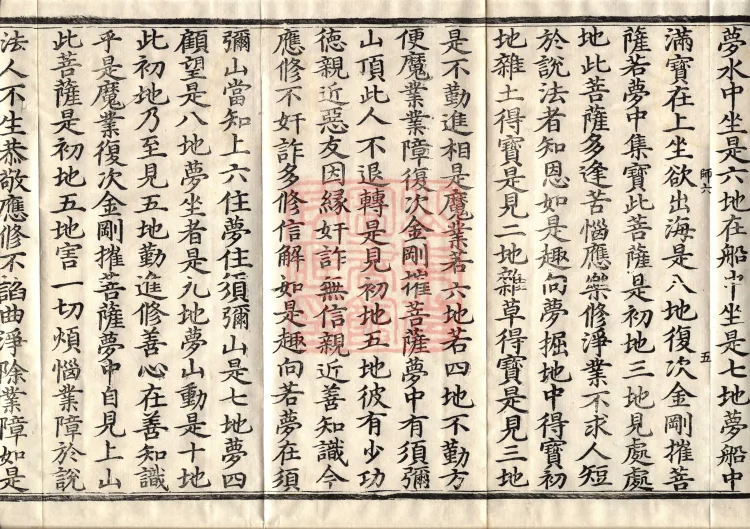 夢水中坐是六地在船中坐是七地夢船中
滿寶在上坐欲出海是八地復次金剛摧菩
師六
五
薩若夢中集寶此菩薩是初地三地見處處
地此菩薩多逢苦惱應樂修淨業不求人短
於說法者知恩如是趣向夢掘地中得寶初
地雜土得寶是見二地雜草得寶是見三地
是不勤進相是魔業若六地若四地不勤方
便魔業業障復次金剛摧菩薩夢中有須彌
山頂此人不退轉是見初地五地彼有少功
德親近惡友因緣奸詐無信親近善知識令
應修不奸詐多修信解如是趣向若夢在須
彌山當知上六住夢住須彌山是七地夢四
顧望是八地夢坐者是九地夢山動是十地
此初地乃至見五地勤進修善心在善知識
乎是魔業復次金剛摧菩薩夢中自見上山
此菩薩是初地五地害一切煩惱業障於說
法人不生恭敬應修不諂曲淨除業障如是